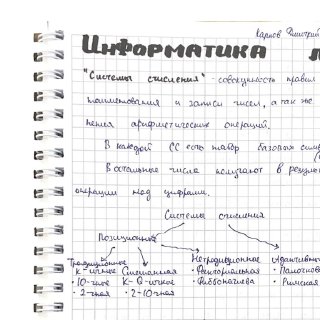 Карпов Дмитрий
Информатика
"Системы счисления" - совокупность правил
наименования и записи чисел, а так же
нения арифметических операций.
В каждой СС есть набор базовых симв
Остальные числа получают в резул
операции над цифрами.
Системы счисления
Позиционные
Традиционные
К-ичное
10-чное
2-чная
Смешанная
К-Q-ичное
2-10-чная
Нетрадиционное
Факториальная
Фиббоначива
Палочков
Римская